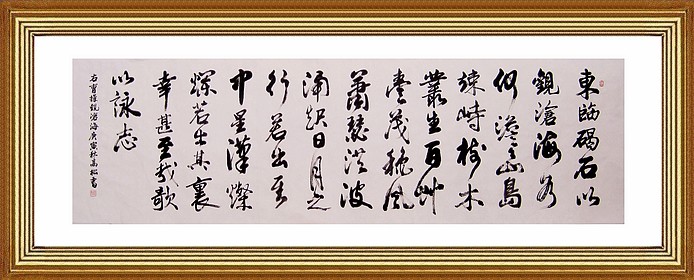 東臨碣石以
觀滄海水
何澹々山島
竦峙樹木
叢生百艸
豐茂秋風
蕭瑟洪波
涌起日月之
行若出其
中星漢燦
爛若出其裏
幸甚至哉歌
以詠志
右曹操觀滄海庚寅秋高松書